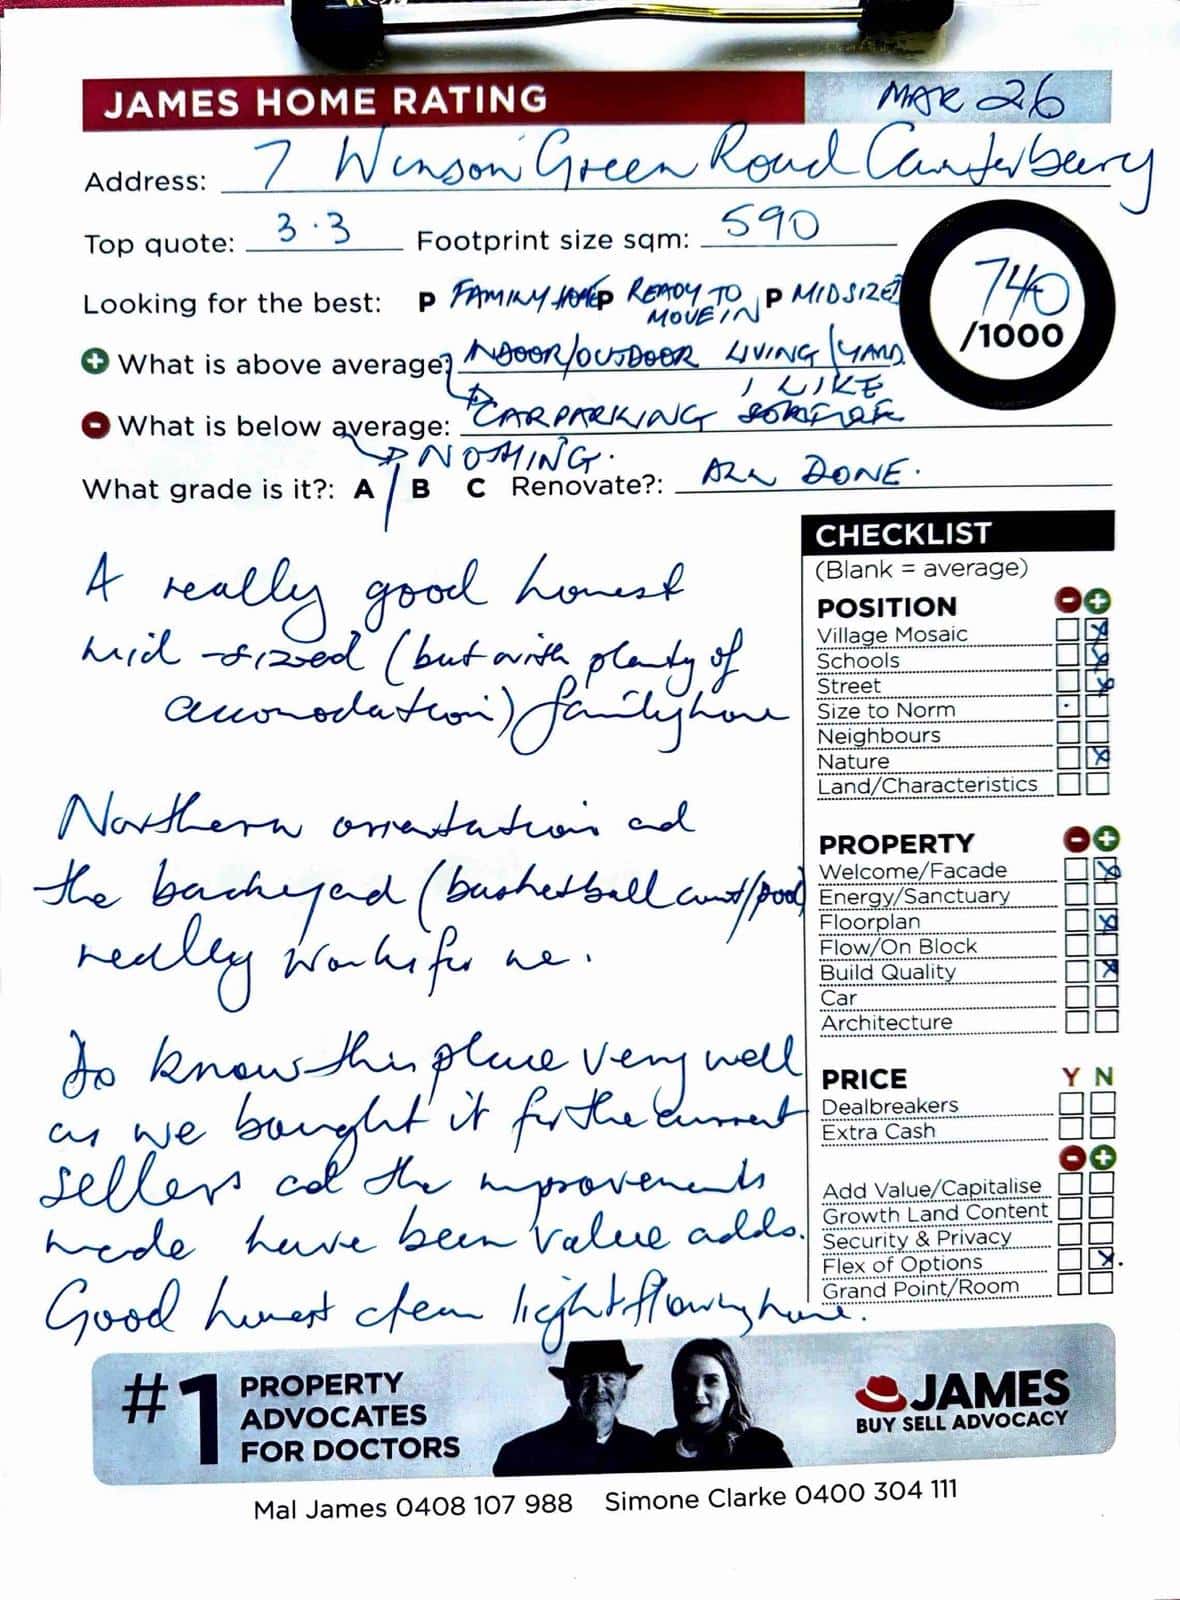 JAMES HOME RATING MAR 26
Address: 7 Winson Green Road Canterbury
Top quote: 3.3 Footprint size sqm: 590
740
/1000
Looking for the best: P FAMILY HOME P READY TO MOVE IN P MIDSIZE
+ What is above average? INDOOR/OUTDOOR LIVING/YARD
I LIKE
CARPARKING
- What is below average:
NOTHING.
What grade is it?: A / B C Renovate?: ALL DONE.
A really good honest
mid-sized (but with plenty of
accomodation) family home
Northern orientation and
the backyard (basketball court/pool)
really works for me.
know this place very well
as we bought it for the current
sellers and the improvements
made have been value adds.
Good honest clean light flowing home.
CHECKLIST
(Blank = average)
POSITION - +
Village Mosaic x
Schools x
Street x
Size to Norm
Neighbours
Nature x
Land/Characteristics
PROPERTY - +
Welcome/Facade x
Energy/Sanctuary
Floorplan x
Flow/On Block
Build Quality x
Car
Architecture
PRICE Y N
Dealbreakers
Extra Cash
- +
Add Value/Capitalise
Growth Land Content
Security & Privacy
Flex of Options x
Grand Point/Room
#1 PROPERTY
ADVOCATES
FOR DOCTORS
JAMES
BUY SELL ADVOCACY
Mal James 0408 107 988 Simone Clarke 0400 304 111